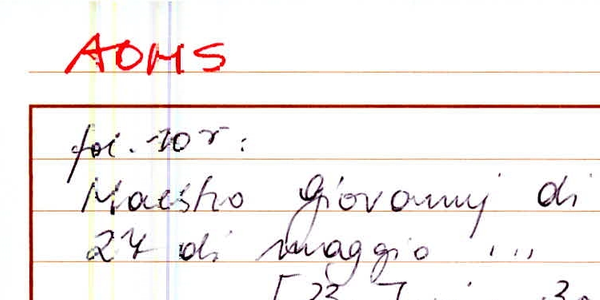 AOMS
fol. 10r:
Maestro Giovannj di
27 di maggio ...
[23